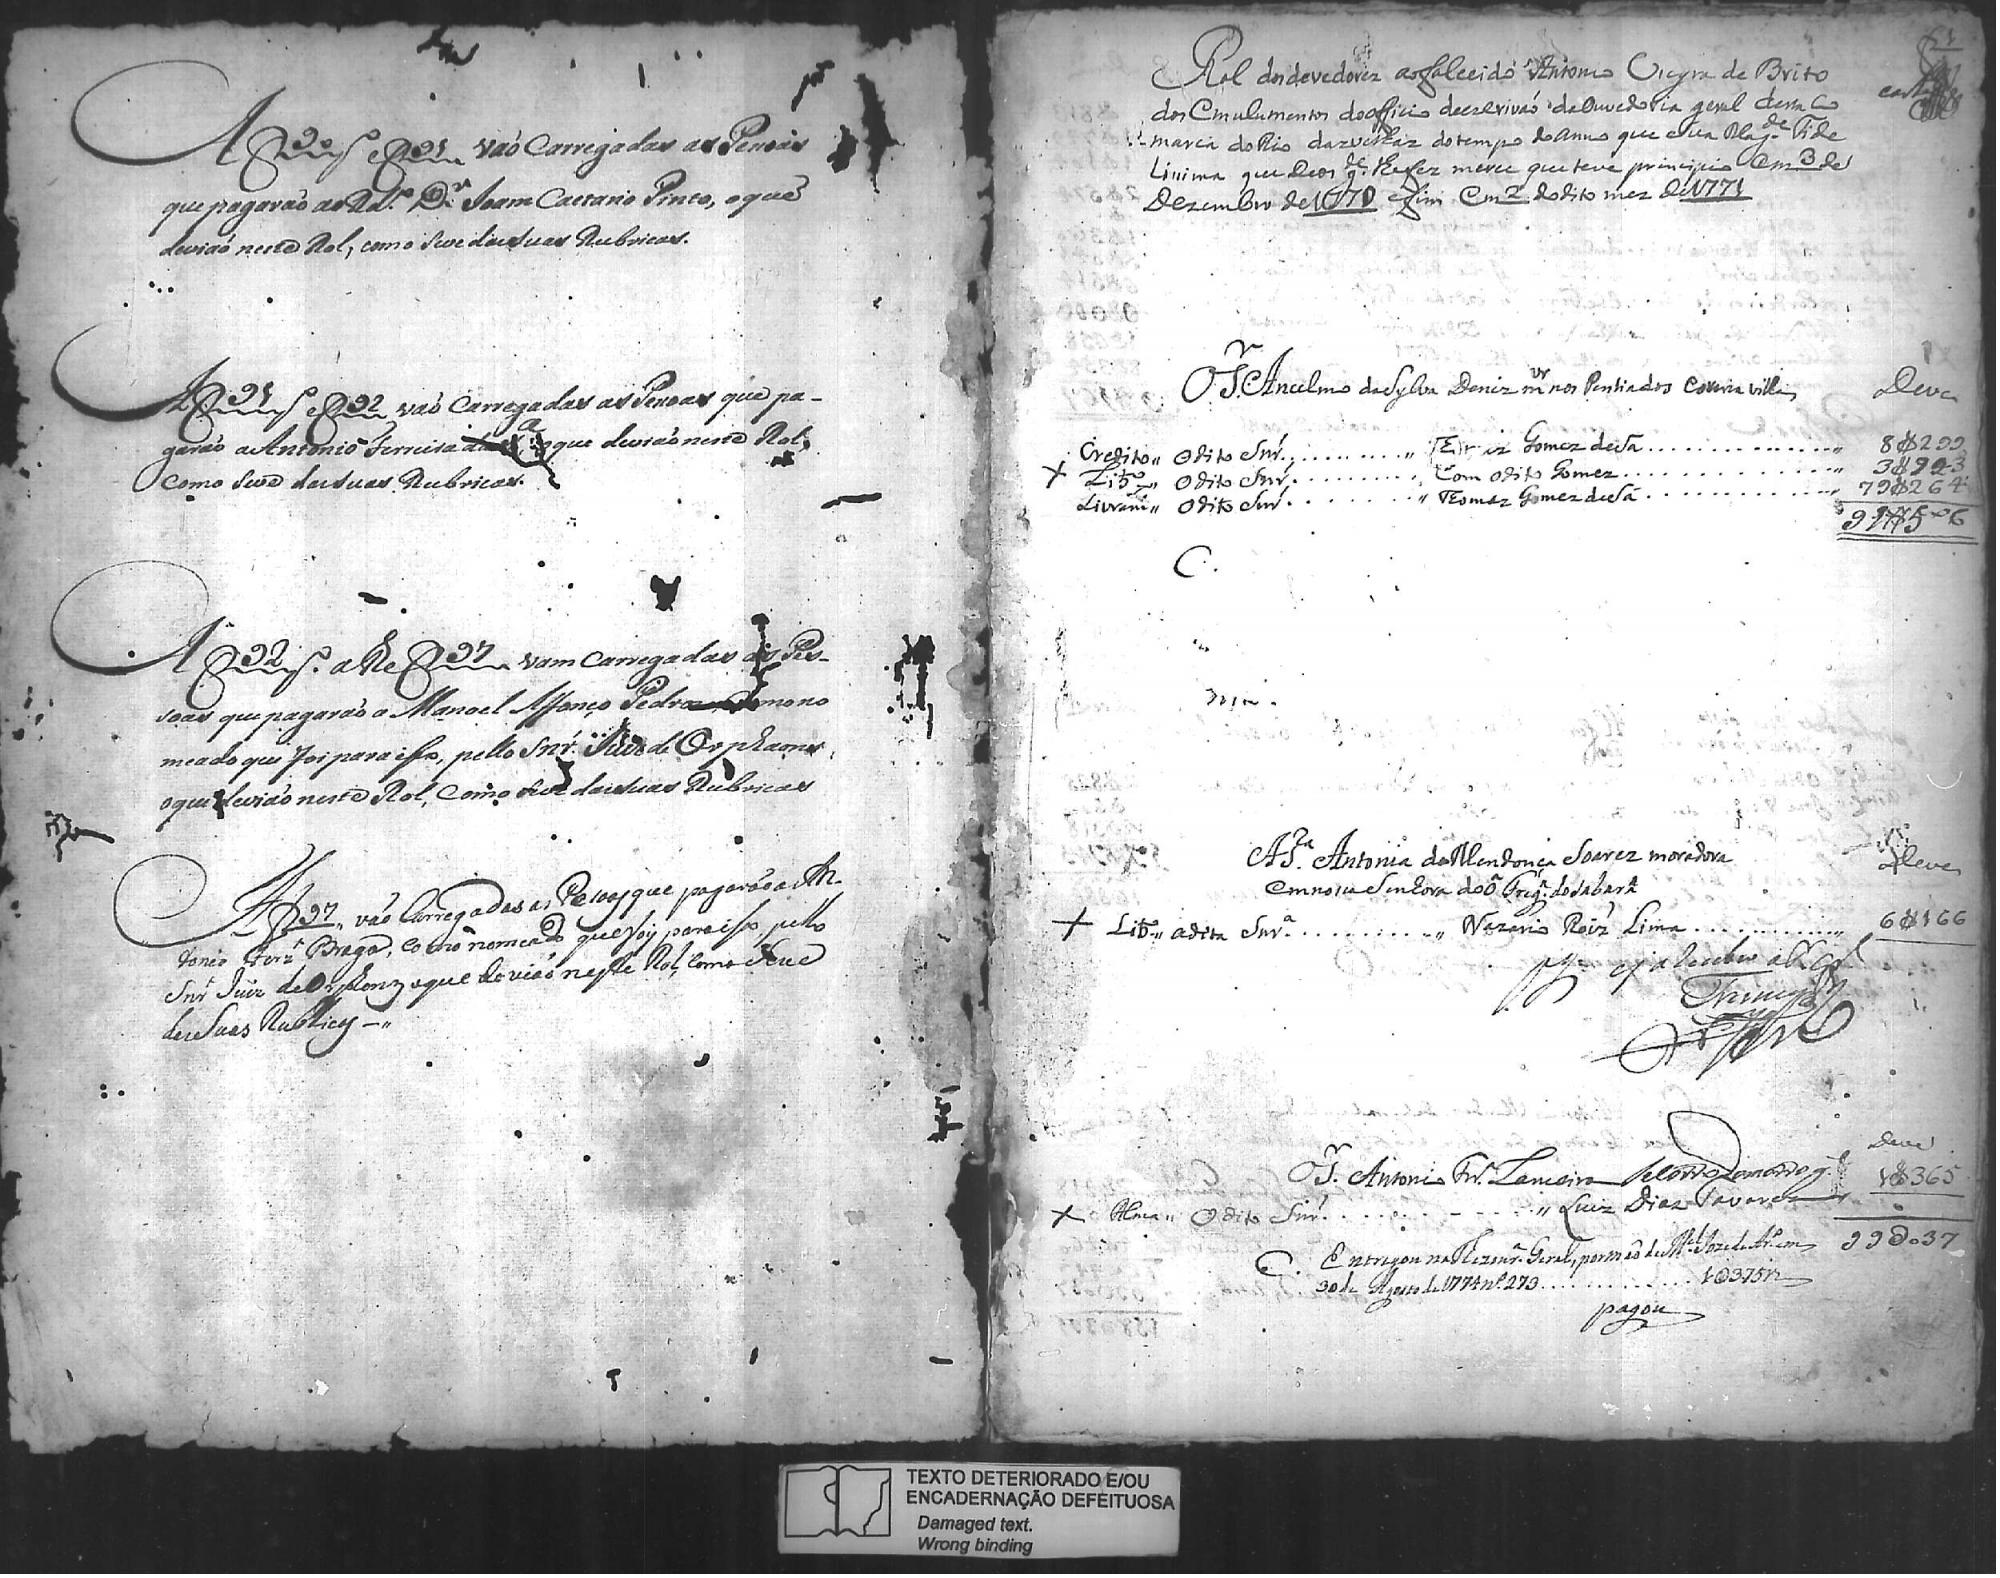 A f 90 e f 91 vaõ Carregadas as Pesoas
que pagaraõ ao Rd.º D.r Joam Caetano Pinto, o que
deviaõ neste Rol, como se ve das suas Rubricas.
A f 91 e f 92 vaõ Carregadas as Pesoas que pa-
garaõ a Antonio Ferreira o que deviaõ neste Rol,
como se ve das suas Rubricas.
A f 92 athe f 97 vam Carregadas as Pes-
soas que pagaraõ a Manoel Affonço Pedro como no
meado que foi para isso, pello Snr. Juis de Orphaons,
o que deviaõ neste Rol, como se ve das suas Rubricas
A f 97 vaõ Carregadas as Pesoas que pagaraõ a An-
tonio Frz Braga, como nomeado que foy para isso, pello
Snr Juiz de Orfons o que deviaõ neste Rol, como se ve
de suas Rubricas
Rol dos devedores ao falecido Antonio Vieyra de Brito
dos Emulumentos do officio de escrivaõ da Ouvedoria geral desta Co
marca do Rio das velhas do tempo do anno que sua Mag.de Fide
lisima que Deos g.de lhe fez merce que teve principio em 3 de
Dezembro de 1770 e fim em 2 do dito mez de 1771
O S.r Anselmo da Sylva Deniz m.or nos Pentiados desta villa Deve
Credito Odito Snr. Gomez de Sá 8$299
X Lib.º Odito Snr. Com odito Gomez 3$993
Livram Odito Snr. Thomaz Gomez de Sá 79$264
91$556
C.
A S.ra Antonia de Mendonça Soarez moradora Deve
em nossa Senhora do Ó Freg.ª do Sabará
X Lib.º adita Snr.ª Nazario Roiz Lima 6$166
O S.r Antonio Frr.ª Lanceiro Deve
1$365
X Alma Odito Snr. Luiz Dias Tavares
99$037
C. Entregou na Thezour.ª Geral, por maõ de M.el Joze de Ar.º em
30 de Agosto de 1774 n.º 273 1$375
pagou
TEXTO DETERIORADO E/OU
ENCADERNAÇÃO DEFEITUOSA
Damaged text.
Wrong binding